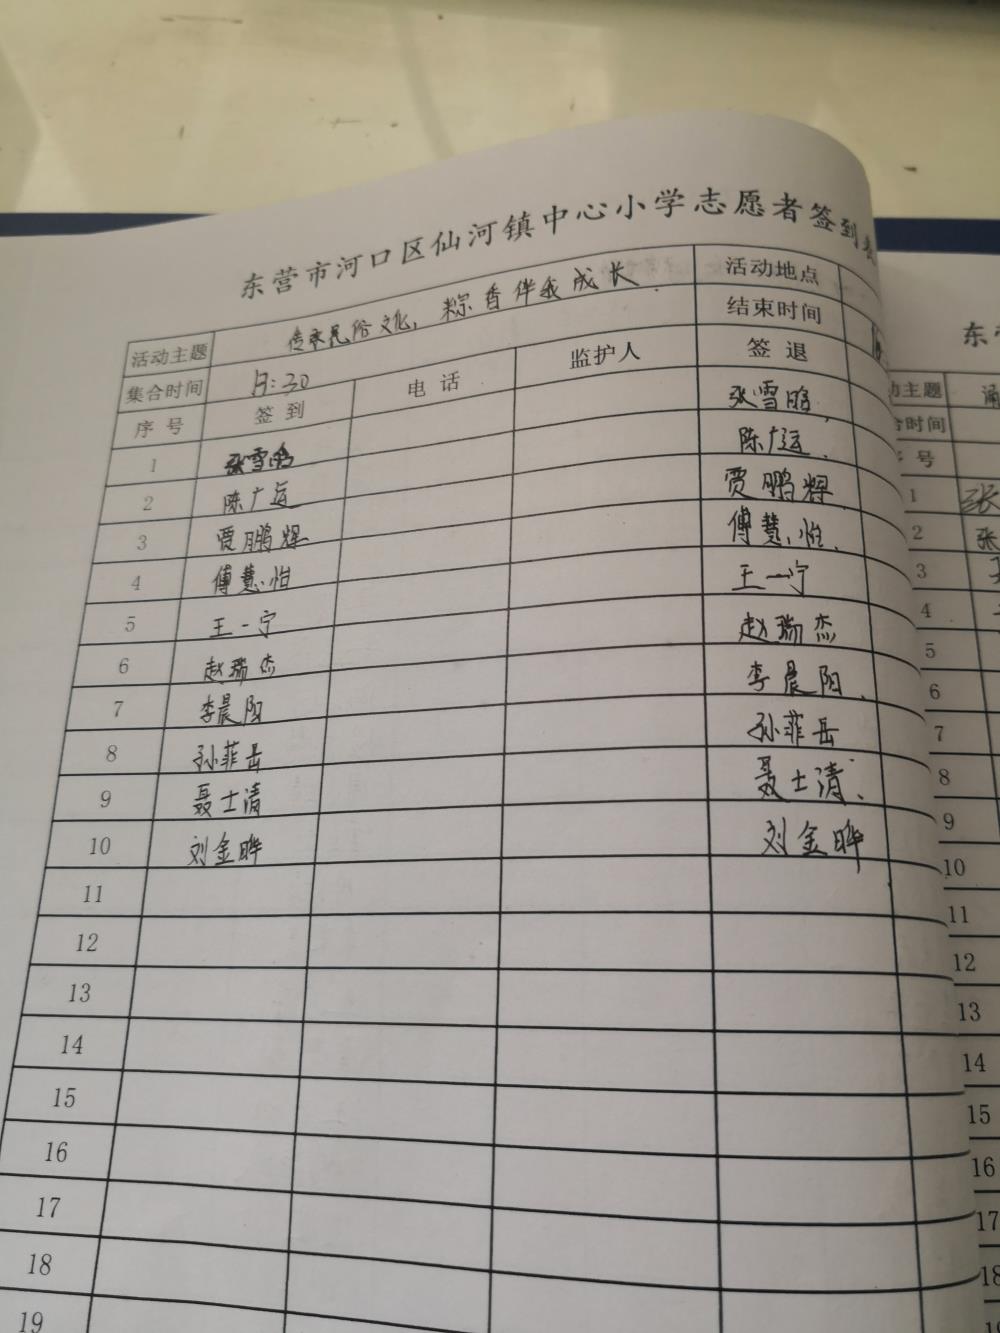 东营市河口区仙河镇中心小学志愿者签到表
活动主题 传承民俗文化，粽香伴我成长 活动地点
集合时间 13:30 结束时间
序号 签到 电话 监护人 签退
1 张雪鹏 张雪鹏
2 陈广运 陈广运
3 贾鹏辉 贾鹏辉
4 傅慧怡 傅慧怡
5 王一宁 王一宁
6 赵瑞杰 赵瑞杰
7 李晨阳 李晨阳
8 孙菲岳 孙菲岳
9 聂士清 聂士清
10 刘金晔 刘金晔
11
12
13
14
15
16
17
18
19
东营
动主题
合时间
序号
1 张
2 张
3
4
5
6
7
8
9
10
11
12
13
14
15
16
17
18